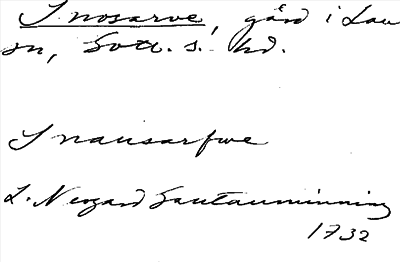 Snosarve, gård i Lau
sn, Gotl. s. hd.
Snausarfwe
L. Nergard Gautauminning
1732